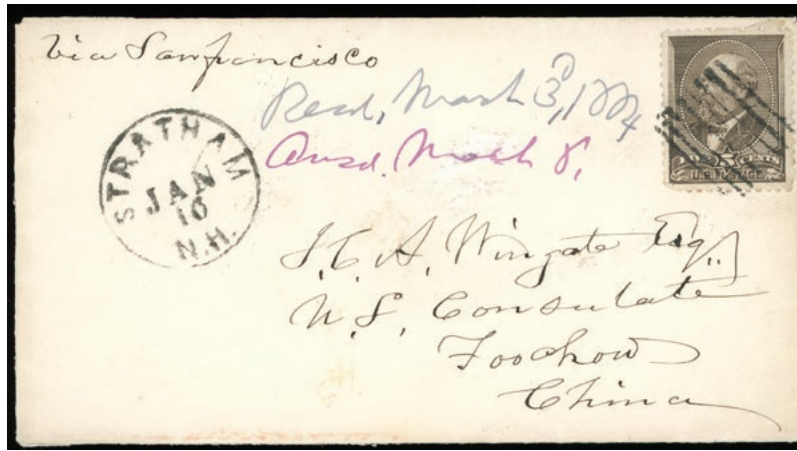 Via Sanfrancisco
Recd, March 3d, 1884
Ansd. March 8,
STRATHAM
JAN
10
N.H.
5 CENTS
U.S. POSTAGE
J. C. A. Wingate Esq.,
U. S. Consulate
Foochow
China